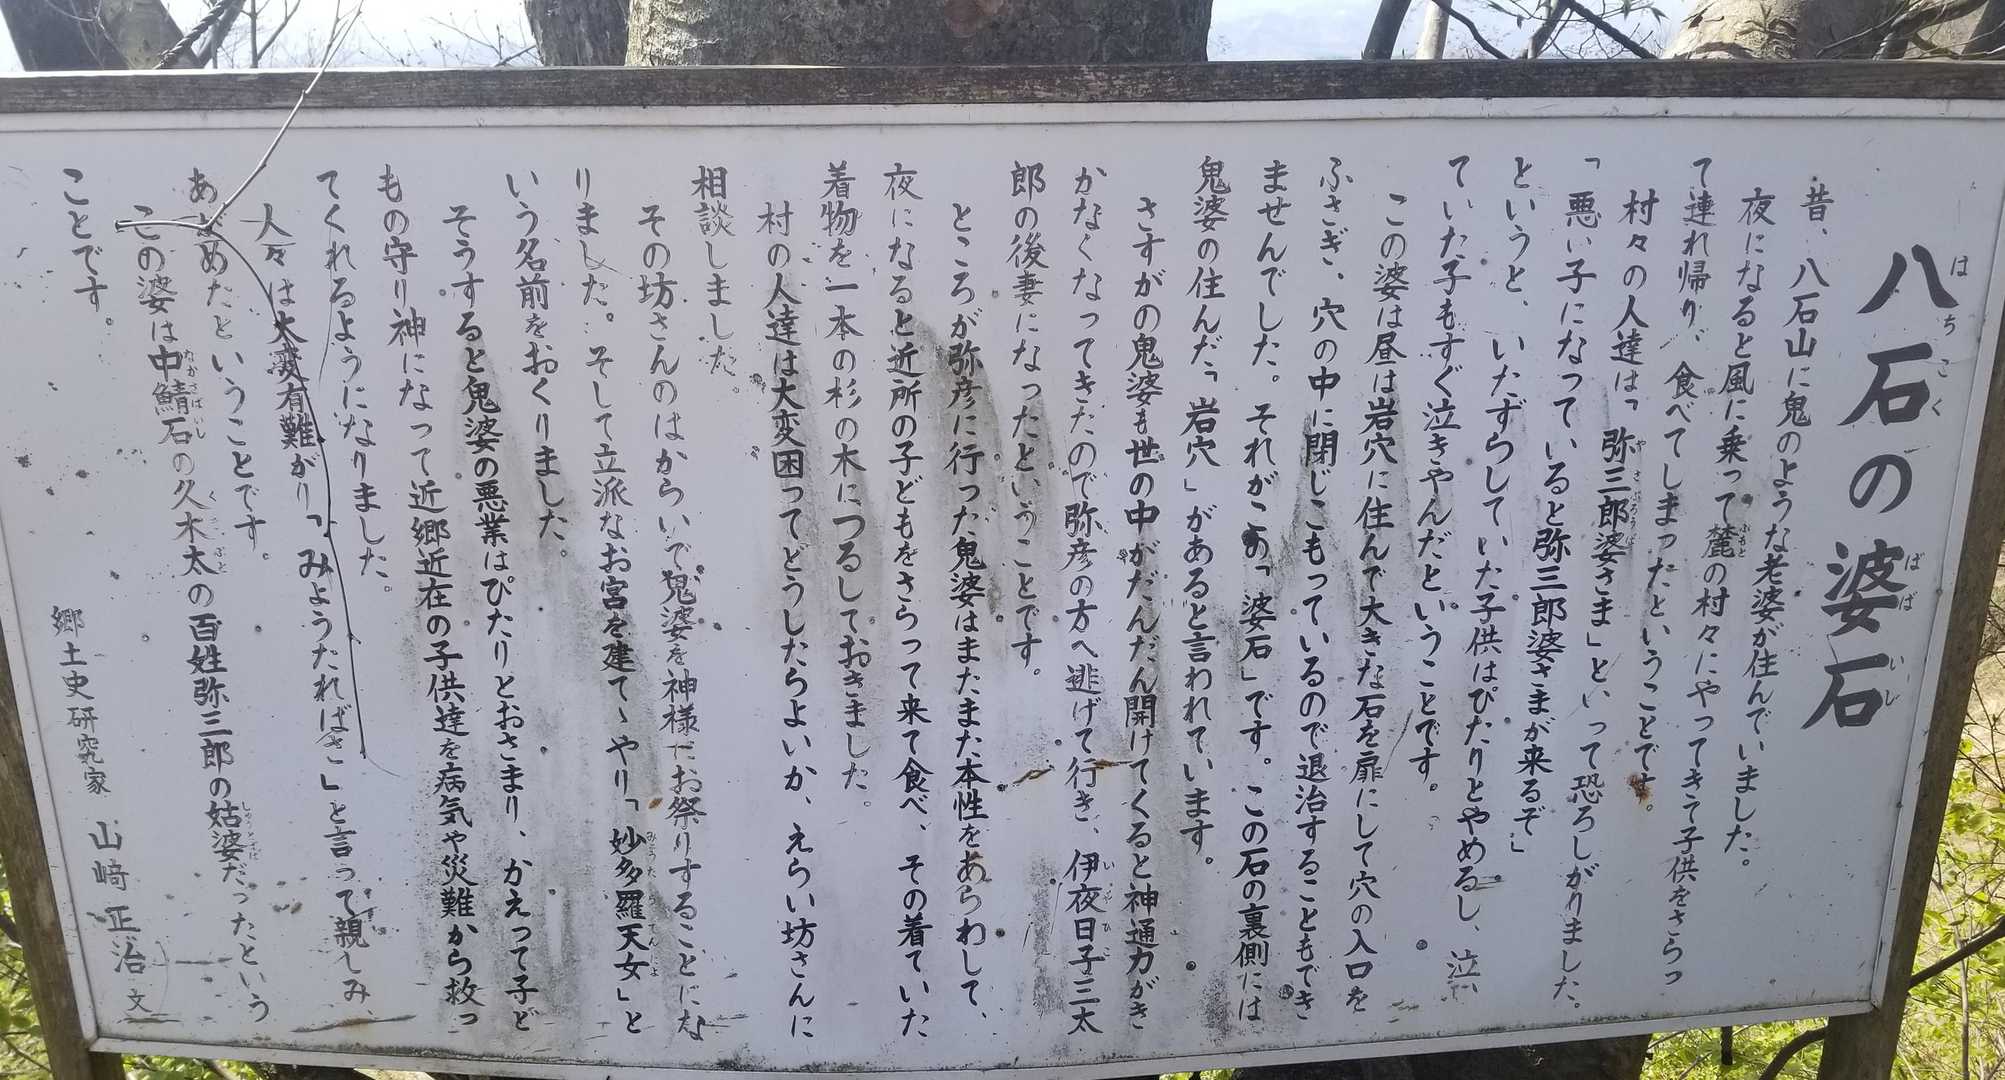 八石の婆石
昔、八石山に鬼のような老婆が住んでいました。
夜になると風に乗って麓の村々にやってきて子供をさらっ
て連れ帰り、食べてしまったということです。
村々の人達は「弥三郎婆さま」といって恐ろしがりました。
「悪い子になっていると弥三郎婆さまが来るぞ」
というと、いたずらしていた子供はぴたりとやめるし、泣い
ていた子もすぐ泣きやんだということです。
この婆は昼は岩穴に住んで大きな石を扉にして穴の入口を
ふさぎ、穴の中に閉じこもっているので退治することもでき
ませんでした。それがこの「婆石」です。この石の裏側には
鬼婆の住んだ「岩穴」があると言われています。
さすがの鬼婆も世の中がだんだん開けてくると神通力がき
かなくなってきたので弥彦の方へ逃げて行き、伊夜日子三太
郎の後妻になったということです。
ところが弥彦に行った鬼婆はまたまた本性をあらわして、
夜になると近所の子どもをさらって来て食べ、その着ていた
着物を一本の杉の木につるしておきました。
村の人達は大変困ってどうしたらよいか、えらい坊さんに
相談しました。
その坊さんのはからいで鬼婆を神様にお祭りすることにな
りました。そして立派なお宮を建てゝやり「妙多羅天女」と
いう名前をおくりました。
そうすると鬼婆の悪業はぴたりとおさまり、かえって子ど
もの守り神になって近郷近在の子供達を病気や災難から救っ
てくれるようになりました。
人々は大変有難がり「みようたればさ」と言って親しみ、
あがめたということです。
この婆は中鯖石の久木太の百姓弥三郎の姑婆だったという
ことです。
郷土史研究家 山﨑正治 文